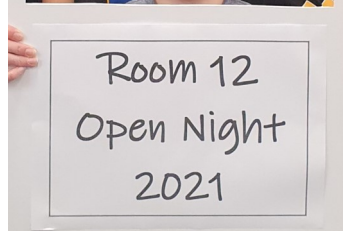 Room 12
Open Night
2021